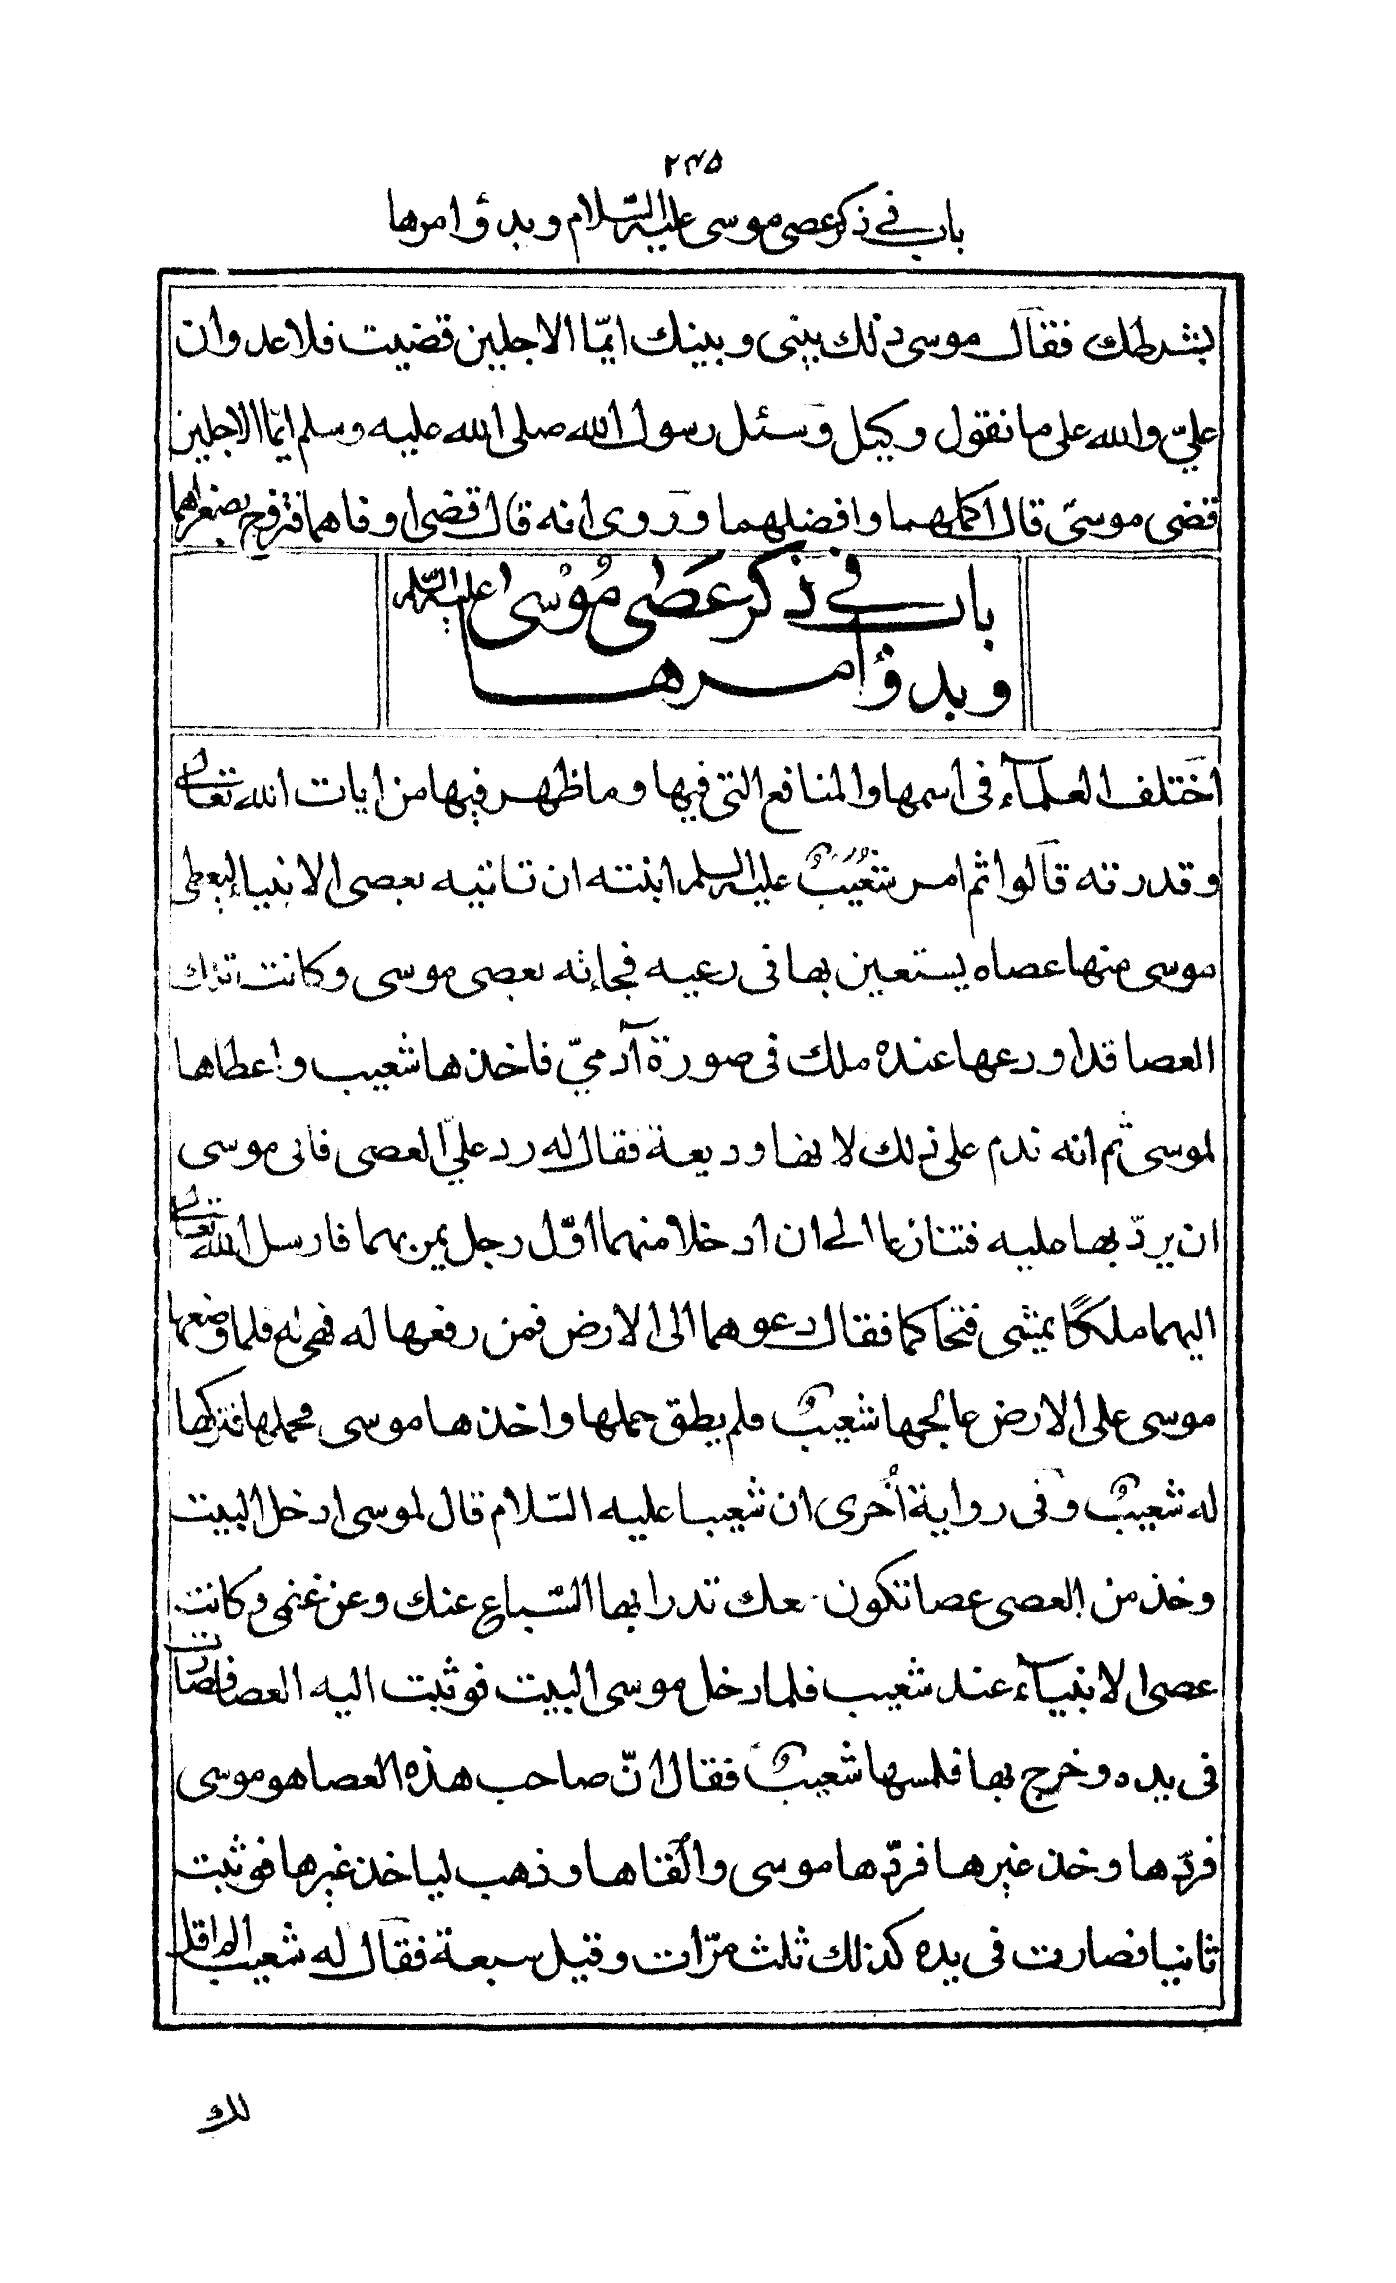 ۲۴۵
باب في ذكر عصى موسى عليه السّلام وبدؤ امرها
بشرطك فقال موسى ذلك بينى وبينك ايّما الاجلين قضيت فلا عدوان
عليّ والله على ما نقول وكيل وسئل رسول الله صلى الله عليه وسلم ايّما الاجلين
قضى موسىّ قال اكملهما وافضلهما وروى انه قال قضى اوفاهما فتزوج بصغراهما
باب في ذكر عصى موسى عليه السّلم
وبدؤ امرها
اختلف العلمآء فى اسمها والمنافع التى فيها وما ظهر فيها من ايات الله تعالى
وقدرته قالوا ثم امر شعيب عليه السلم ابنته ان تاتيه بعصى الانبيا ليعطى
موسى منها عصاه يستعين بها فى رعيه فجاءته بعصى موسى وكانت تلك
العصا قد اودعها عنده ملك فى صورة آدميّ فاخذها شعيب واعطاها
لموسى ثم انه ندم على ذلك لانها وديعة فقال له رد عليّ العصى فابى موسى
ان يردّ بها عليه فتنازعا الى ان ادخلا منهما اوّل رجل يمن بهما فارسل الله تعالى
اليهما ملكًا يمشى فتحاكما فقال دعوهما الى الارض فمن رفعها له فهى له فلما وضعها
موسى على الارض عالجها شعيب فلم يطق حملها واخذها موسى فحملها فتركها
له شعيب وفى رواية أخرى ان شعيبا عليه السّلام قال لموسى ادخل البيت
وخذ من العصى عصا تكون معك تدرا بها السّباع عنك وعن غنمى وكانت
عصى الانبيآء عند شعيب فلما دخل موسى البيت فوثبت اليه العصا فصارت
فى يده وخرج بها فلمسها شعيب فقال انّ صاحب هذه العصا هو موسى
فردّها وخذ غيرها فردّها موسى والقناها وذهب لياخذ غيرها فوثبت
ثانيا فصارت فى يده كذلك ثلث مرّات وقيل سبعة فقال له شعيب الم اقل
لك